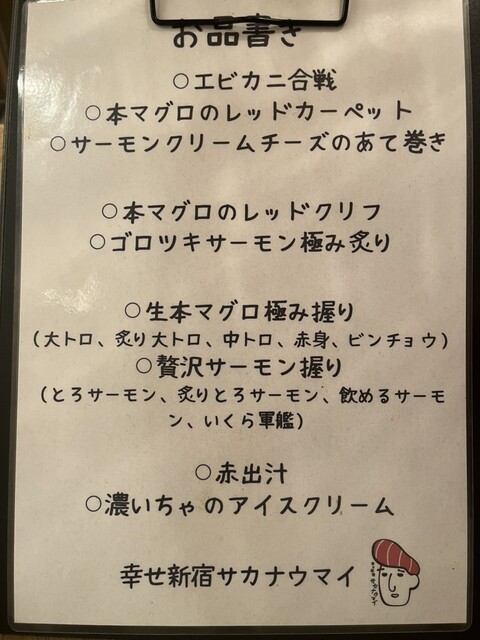 お品書き
○エビカニ合戦
○本マグロのレッドカーペット
○サーモンクリームチーズのあて巻き
○本マグロのレッドクリフ
○ゴロツキサーモン極み炙り
○生本マグロ極み握り
(大トロ、炙り大トロ、中トロ、赤身、ビンチョウ)
○贅沢サーモン握り
(とろサーモン、炙りとろサーモン、飲めるサーモ
ン、いくら軍艦)
○赤出汁
○濃いちゃのアイスクリーム
幸せ新宿サカナウマイ